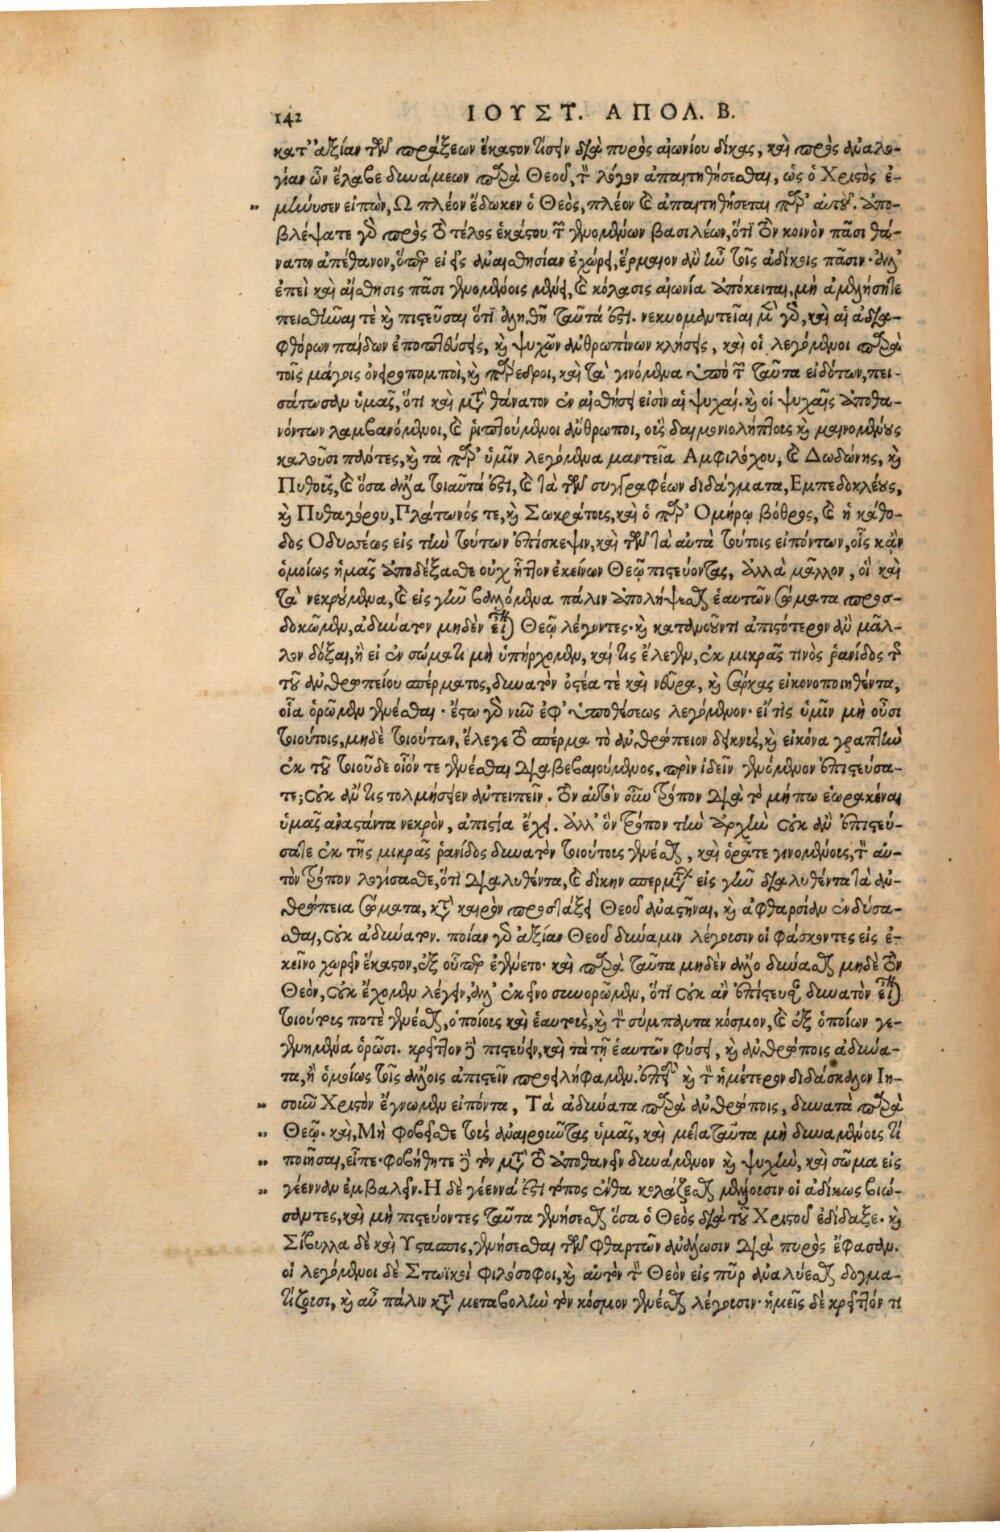 142 ΙΟΥΣΤ. ΑΠΟΛ. Β.
κατ' ἀξίαν τῶν πράξεων ἕκαστον τίσειν διὰ πυρὸς αἰωνίου δίκας, καὶ πρὸς ἀναλο-
γίαν ὧν ἔλαβε δυνάμεων παρὰ Θεοῦ, τὸν λόγον ἀπαιτηθήσεσθαι, ὡς ὁ Χριστὸς ἐ-
„ μήνυσεν εἰπὼν, Ω πλέον ἔδωκεν ὁ Θεὸς, πλέον καὶ ἀπαιτηθήσεται παρ' αὐτοῦ. Ἀπο-
βλέψατε γὰρ πρὸς τὸ τέλος ἑκάστου τῶν γενομένων βασιλέων, ὅτι τὸν κοινὸν πᾶσι θά-
νατον ἀπέθανον, ὅπερ εἰ εἰς ἀναισθησίαν ἐχώρει, ἕρμαιον ἂν ἦν τοῖς ἀδίκοις πᾶσιν· ἀλλ'
ἐπεὶ καὶ αἴσθησις πᾶσι γενομένοις μένει, καὶ κόλασις αἰωνία ἀπόκειται, μὴ ἀμελήσητε
πεισθῆναι τὲ καὶ πιστεῦσαι ὅτι ἀληθῆ ταῦτά ἐστι. νεκυομαντεῖαι μὲν γὰρ, καὶ αἱ ἀδια-
φθόρων παίδων ἐποπτεύσεις, καὶ ψυχῶν ἀνθρωπίνων κλήσεις, καὶ οἱ λεγόμενοι παρὰ
τοῖς μάγοις ὀνειροπομποὶ, καὶ πάρεδροι, καὶ τὰ γινόμενα ὑπὸ τῶν ταῦτα εἰδότων, πει-
σάτωσαν ὑμᾶς, ὅτι καὶ μετὰ θάνατον ἐν αἰσθήσει εἰσὶν αἱ ψυχαί. καὶ οἱ ψυχαῖς ἀποθα-
νόντων λαμβανόμενοι, καὶ ῥιπτούμενοι ἄνθρωποι, οὓς δαιμονιολήπτους καὶ μαινομένους
καλοῦσι πάντες, καὶ τὰ παρ' ὑμῖν λεγόμενα μαντεῖα Αμφιλόχου, καὶ Δωδώνης, καὶ
Πυθοῦς, καὶ ὅσα ἄλλα τοιαῦτά ἐστι, καὶ τὰ τῶν συγγραφέων διδάγματα, Εμπεδοκλέους,
καὶ Πυθαγόρου, Πλάτωνός τε, καὶ Σωκράτους, καὶ ὁ παρ' Ομήρῳ βόθρος, καὶ ἡ κάθο-
δος Οδυσσέως εἰς τὴν τούτων ἐπίσκεψιν, καὶ τῶν τὰ αὐτὰ τούτοις εἰπόντων, οἷς κἂν
ὁμοίως ἡμᾶς ἀποδέξασθε οὐχ ἧττον ἐκείνων Θεῷ πιστεύοντας, ἀλλὰ μᾶλλον, οἳ καὶ
τὰ νεκρούμενα, καὶ εἰς γῆν βαλλόμενα πάλιν ἀπολήψεσθαι ἑαυτῶν σώματα προσ-
δοκῶμεν, ἀδύνατον μηδὲν εἶναι Θεῷ λέγοντες· καὶ κατανοοῦντι ἀπιστότερον ἂν μᾶλ-
λον δόξαι, ἢ εἰ ἐν σώματι μὴ ὑπήρχομεν, καί τις ἔλεγεν, ἐκ μικρᾶς τινὸς ῥανίδος τῆς
τοῦ ἀνθρωπείου σπέρματος, δυνατὸν ὀστέα τὲ καὶ νεῦρα, καὶ σάρκας εἰκονοποιηθέντα,
οἷα ὁρῶμεν γενέσθαι· ἔστω γὰρ νῦν ἐφ' ὑποθέσεως λεγόμενον· εἴ τις ὑμῖν μὴ οὖσι
τοιούτοις, μηδὲ τοιούτων, ἔλεγε τὸ σπέρμα τὸ ἀνθρώπειον δεικνὺς, καὶ εἰκόνα γραπτὴν
ἐκ τοῦ τοιοῦδε οἷόν τε γενέσθαι διαβεβαιούμενος, πρὶν ἰδεῖν γενόμενον ἐπιστεύσα-
τε; οὐκ ἄν τις τολμήσειεν ἀντειπεῖν. τὸν αὐτὸν οὖν τρόπον διὰ τὸ μή πω ἑωρακέναι
ὑμᾶς ἀναστάντα νεκρὸν, ἀπιστία ἔχει. ἀλλ' ὃν τρόπον τὴν ἀρχὴν οὐκ ἂν ἐπιστεύ-
σατε ἐκ τῆς μικρᾶς ῥανίδος δυνατὸν τοιούτους γενέσθαι, καὶ ὁρᾶτε γινομένους, τὸν αὐ-
τὸν τρόπον λογίσασθε, ὅτι διαλυθέντα, καὶ δίκην σπερμάτων εἰς γῆν διαλυθέντα τὰ ἀν-
θρώπεια σώματα, κατὰ καιρὸν προστάξει Θεοῦ ἀναστῆναι, καὶ ἀφθαρσίαν ἐνδύσα-
σθαι, οὐκ ἀδύνατον. ποίαν γὰρ ἀξίαν Θεοῦ δύναμιν λέγουσιν οἱ φάσκοντες εἰς ἐ-
κεῖνο χωρεῖν ἕκαστον, ἐξ οὗπερ ἐγένετο· καὶ παρὰ ταῦτα μηδὲν ἄλλο δύνασθαι μηδὲ τὸν
Θεὸν, οὐκ ἔχομεν λέγειν, ἀλλ' ἐκεῖνο συνορῶμεν, ὅτι οὐκ ἂν ἐπίστευσαν δυνατὸν εἶναι
τοιούτους ποτὲ γενέσθαι, ὁποίους καὶ ἑαυτοὺς, καὶ τὸν σύμπαντα κόσμον, καὶ ἐξ ὁποίων γε-
γενημένα ὁρῶσι. κρεῖττον δὲ πιστεύειν, καὶ τὰ τῇ ἑαυτῶν φύσει, καὶ ἀνθρώποις ἀδύνα-
τα, ἢ ὁμοίως τοῖς ἄλλοις ἀπιστεῖν προειλήφαμεν. ἐπειδὴ καὶ τὸν ἡμέτερον διδάσκαλον Ιη-
„ σοῦν Χριστὸν ἔγνωμεν εἰπόντα, Τὰ ἀδύνατα παρὰ ἀνθρώποις, δυνατὰ παρὰ
„ Θεῷ. καὶ, Μὴ φοβεῖσθε τοὺς ἀναιροῦντας ὑμᾶς, καὶ μετὰ ταῦτα μὴ δυναμένους τί
„ ποιῆσαι, εἶπε· φοβήθητε δὲ τὸν μετὰ τὸ ἀποθανεῖν δυνάμενον καὶ ψυχὴν, καὶ σῶμα εἰς
„ γέενναν ἐμβαλεῖν. Η δὲ γέεννά ἐστι τόπος ἔνθα κολάζεσθαι μέλλουσιν οἱ ἀδίκως βιώ-
σαντες, καὶ μὴ πιστεύοντες ταῦτα γενήσεσθαι ὅσα ὁ Θεὸς διὰ τοῦ Χριστοῦ ἐδίδαξε. καὶ
Σίβυλλα δὲ καὶ Υστάσπις, γενήσεσθαι τῶν φθαρτῶν ἀνάλωσιν διὰ πυρὸς ἔφασαν.
οἱ λεγόμενοι δὲ Στωϊκοὶ φιλόσοφοι, καὶ αὐτὸν τὸν Θεὸν εἰς πῦρ ἀναλύεσθαι δογμα-
τίζουσι, καὶ αὖ πάλιν κατὰ μεταβολὴν τὸν κόσμον γενέσθαι λέγουσιν· ἡμεῖς δὲ κρεῖττόν τι